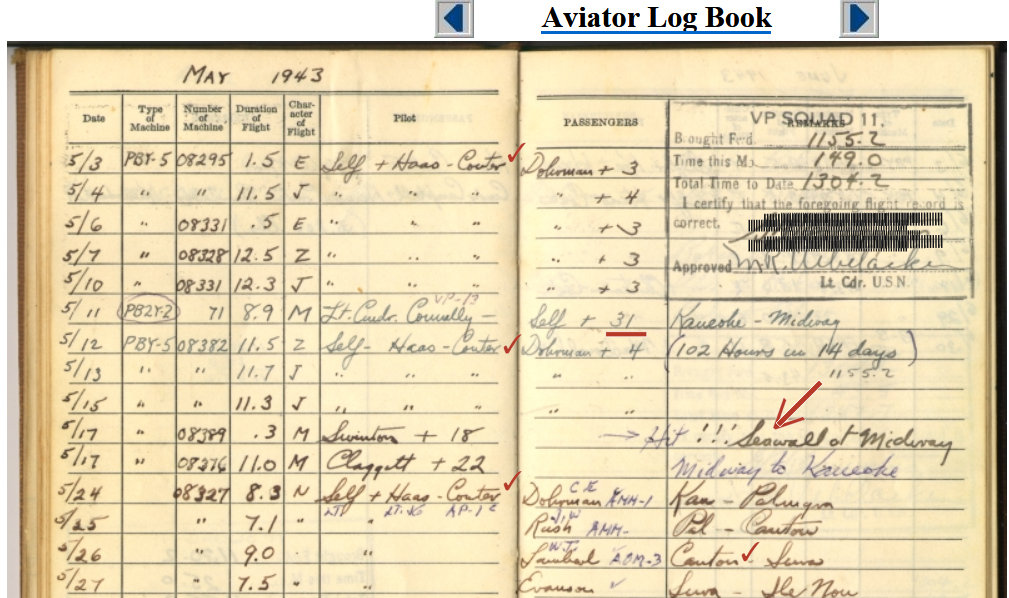 Aviator Log Book
MAY 1943
Date Type of Machine Number of Machine Duration of Flight Character of Flight Pilot PASSENGERS REMARKS
VP SQUAD 11,
Brought Fwd. 1155.2
Time this Mo. 149.0
Total Time to Date 1304.2
I certify that the foregoing flight record is
correct.
Approved
Lt. Cdr. U.S.N.
5/3 PBY-5 08295 1.5 E Self + Haas - Conter ✓ Dohrman + 3
5/4 " " 11.5 J " " " " + 4
5/6 " 08331 .5 E " " " " + 3
5/7 " 08328 12.5 Z " " " " + 3
5/10 " 08331 12.3 J " " " " + 3
5/11 PB2Y-2 71 8.9 M Lt. Cmdr. Connelly - VP-13 Self + 31 Kaneohe - Midway
5/12 PBY-5 08382 11.5 Z Self - Haas - Conter ✓ Dohrman + 4 (102 Hours in 14 days)
5/13 " " 11.7 J " " " " " 1155.2
5/15 " " 11.3 J " " " " "
5/17 " 08389 .3 M Swinton + 18 → Hit !!! Seawall at Midway
5/17 " 08276 11.0 M Claggett + 22 Midway to Kaneohe
5/24 08327 8.3 N Self + Haas - Conter ✓ Dohrman CE AMM-1 Kan - Palmyra
5/25 " 7.1 " LT. Lt. JG AP-1c " Rush AMM- Pal - Canton
5/26 " 9.0 " W.T. AOM-3 Canton ✓ - Suva
5/27 " 7.5 " Evanson ✓ Suva - Ile Nou